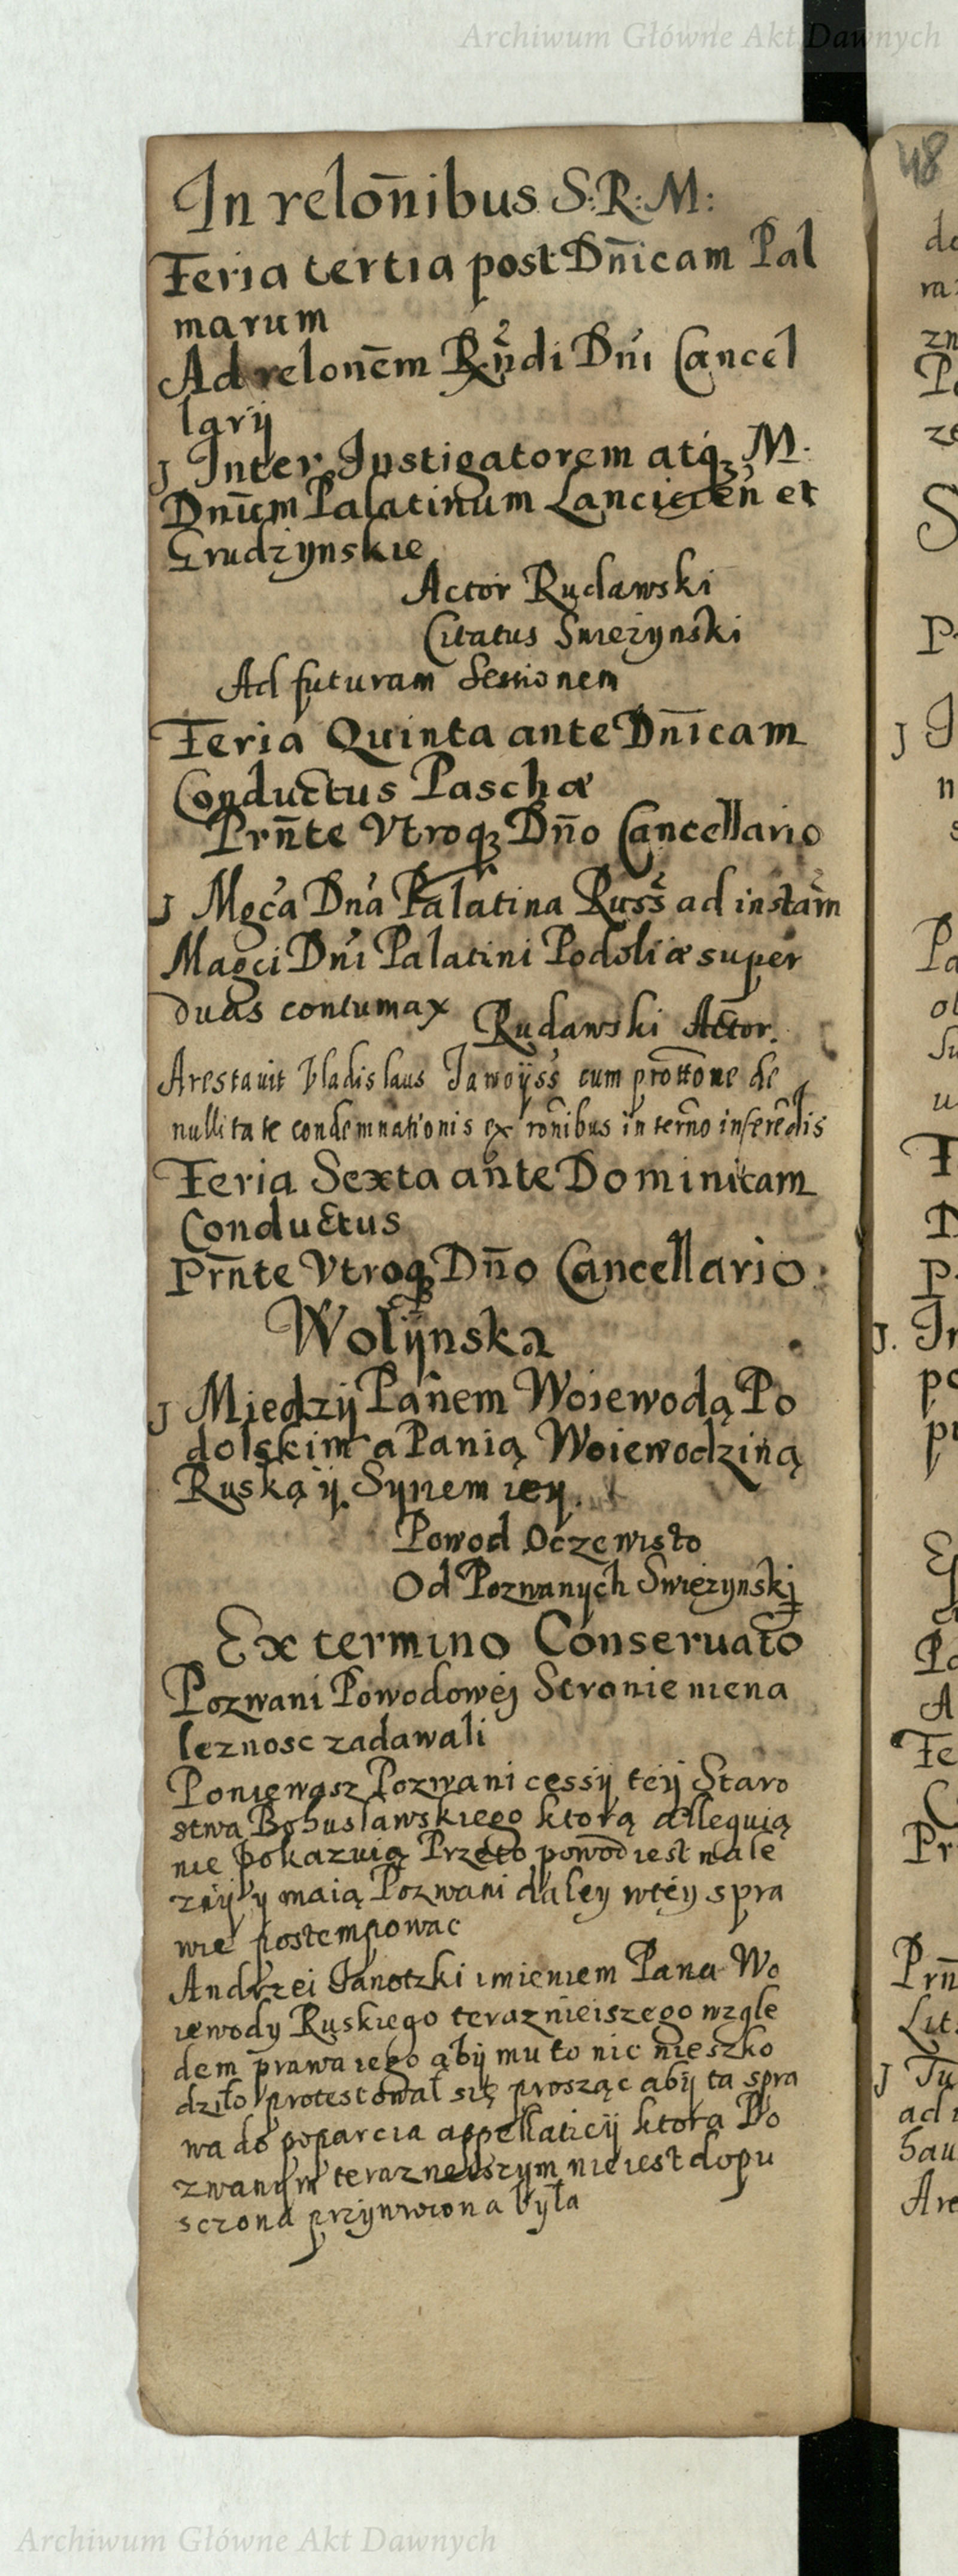 Archiwum Główne Akt Dawnych
In relon̄ibus S: R: M:
Feria tertia post Dn̄icam Pal
marum
Ad relonēm Rn̄di Dni Cancel
larij
J Inter Instigatorem atq₃ M.
Dnūm Palatinum Lancicień et
Grudzynskie
Actor Rudawski
Citatus Swieżynski
Ad futuram Sessionem
Feria Quinta ante Dn̄icam
Conductus Paschæ
Prn̄te Vtroq₃ Dn̄o Cancellario
J Mgca Dna Palatina Russ ad instam
Magci Dni Palatini Podoliæ super
duas contumax Rudawski Actor.
Arestauit Vladislaus Jawoyss cum prottone de
nullitate condemnationis ex ronibus in terno inserēdis
Feria Sexta ante Dominicam
Conductus
Prn̄te Vtroq₃ Dn̄o Cancellario
Wolÿnska
J Miedzij Panem Woiewodą Po
dolskim a Panią Woiewodziną
Ruską ij Synem iey.
Powod Oczewisto
Od Pozwanych Swieżynski
Ex termino Conseruato
Pozwani Powodowéj Stronie niena
leznosc zadawali
Poniewasz Pozwani cessij téij Staro
stwa Bohuslawskiego ktorą alleguią
nie pokazuią Przeto powod iest nale
znÿ y maią Pozwani daley wtéy spra
wie postempowac
Andrzei Janotzki imieniem Pana Wo
iewody Ruskiego teraznieiszego wzgle
dem prawa iego abÿ mu to nic nieszko
dziło protestował się prosząc abÿ ta spra
wa do poparcia appellaticij ktora Po
zwanym terazneiszym nie iest dopu
sczona przÿwrociona bÿła
48
Archiwum Główne Akt Dawnych